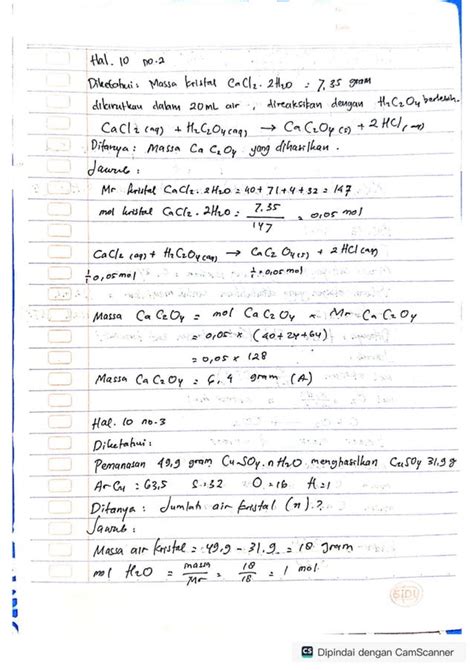 Hal. 10 no.2
Diketahui: Massa kristal CaCl2 . 2H2O = 7,35 gram
dilarutkan dalam 20 mL air, direaksikan dengan H2C2O4 berlebih.
CaCl2 (aq) + H2C2O4(aq) → CaC2O4(s) + 2HCl(aq)
Ditanya: Massa CaC2O4 yang dihasilkan.
Jawab:
Mr kristal CaCl2 . 2H2O = 40 + 71 + 4 + 32 = 147
mol kristal CaCl2 . 2H2O = 7.35 / 147 = 0,05 mol
CaCl2 (aq) + H2C2O4(aq) → CaC2O4(s) + 2HCl(aq)
1/1 0,05 mol 1/1 × 0,05 mol
Massa CaC2O4 = mol CaC2O4 × Mr CaC2O4
= 0,05 × (40+24+64)
= 0,05 × 128
Massa CaC2O4 = 6,4 gram (A)
Hal. 10 no.3
Diketahui:
Pemanasan 49,9 gram CuSO4.nH2O menghasilkan CuSO4 31,9 g
Ar Cu = 63,5 S = 32 O = 16 H = 1
Ditanya: Jumlah air kristal (n).?
Jawab:
Massa air kristal = 49,9 - 31,9 = 18 gram
mol H2O = massa / Mr = 18 / 18 = 1 mol.
SIDU
CS Dipindai dengan CamScanner